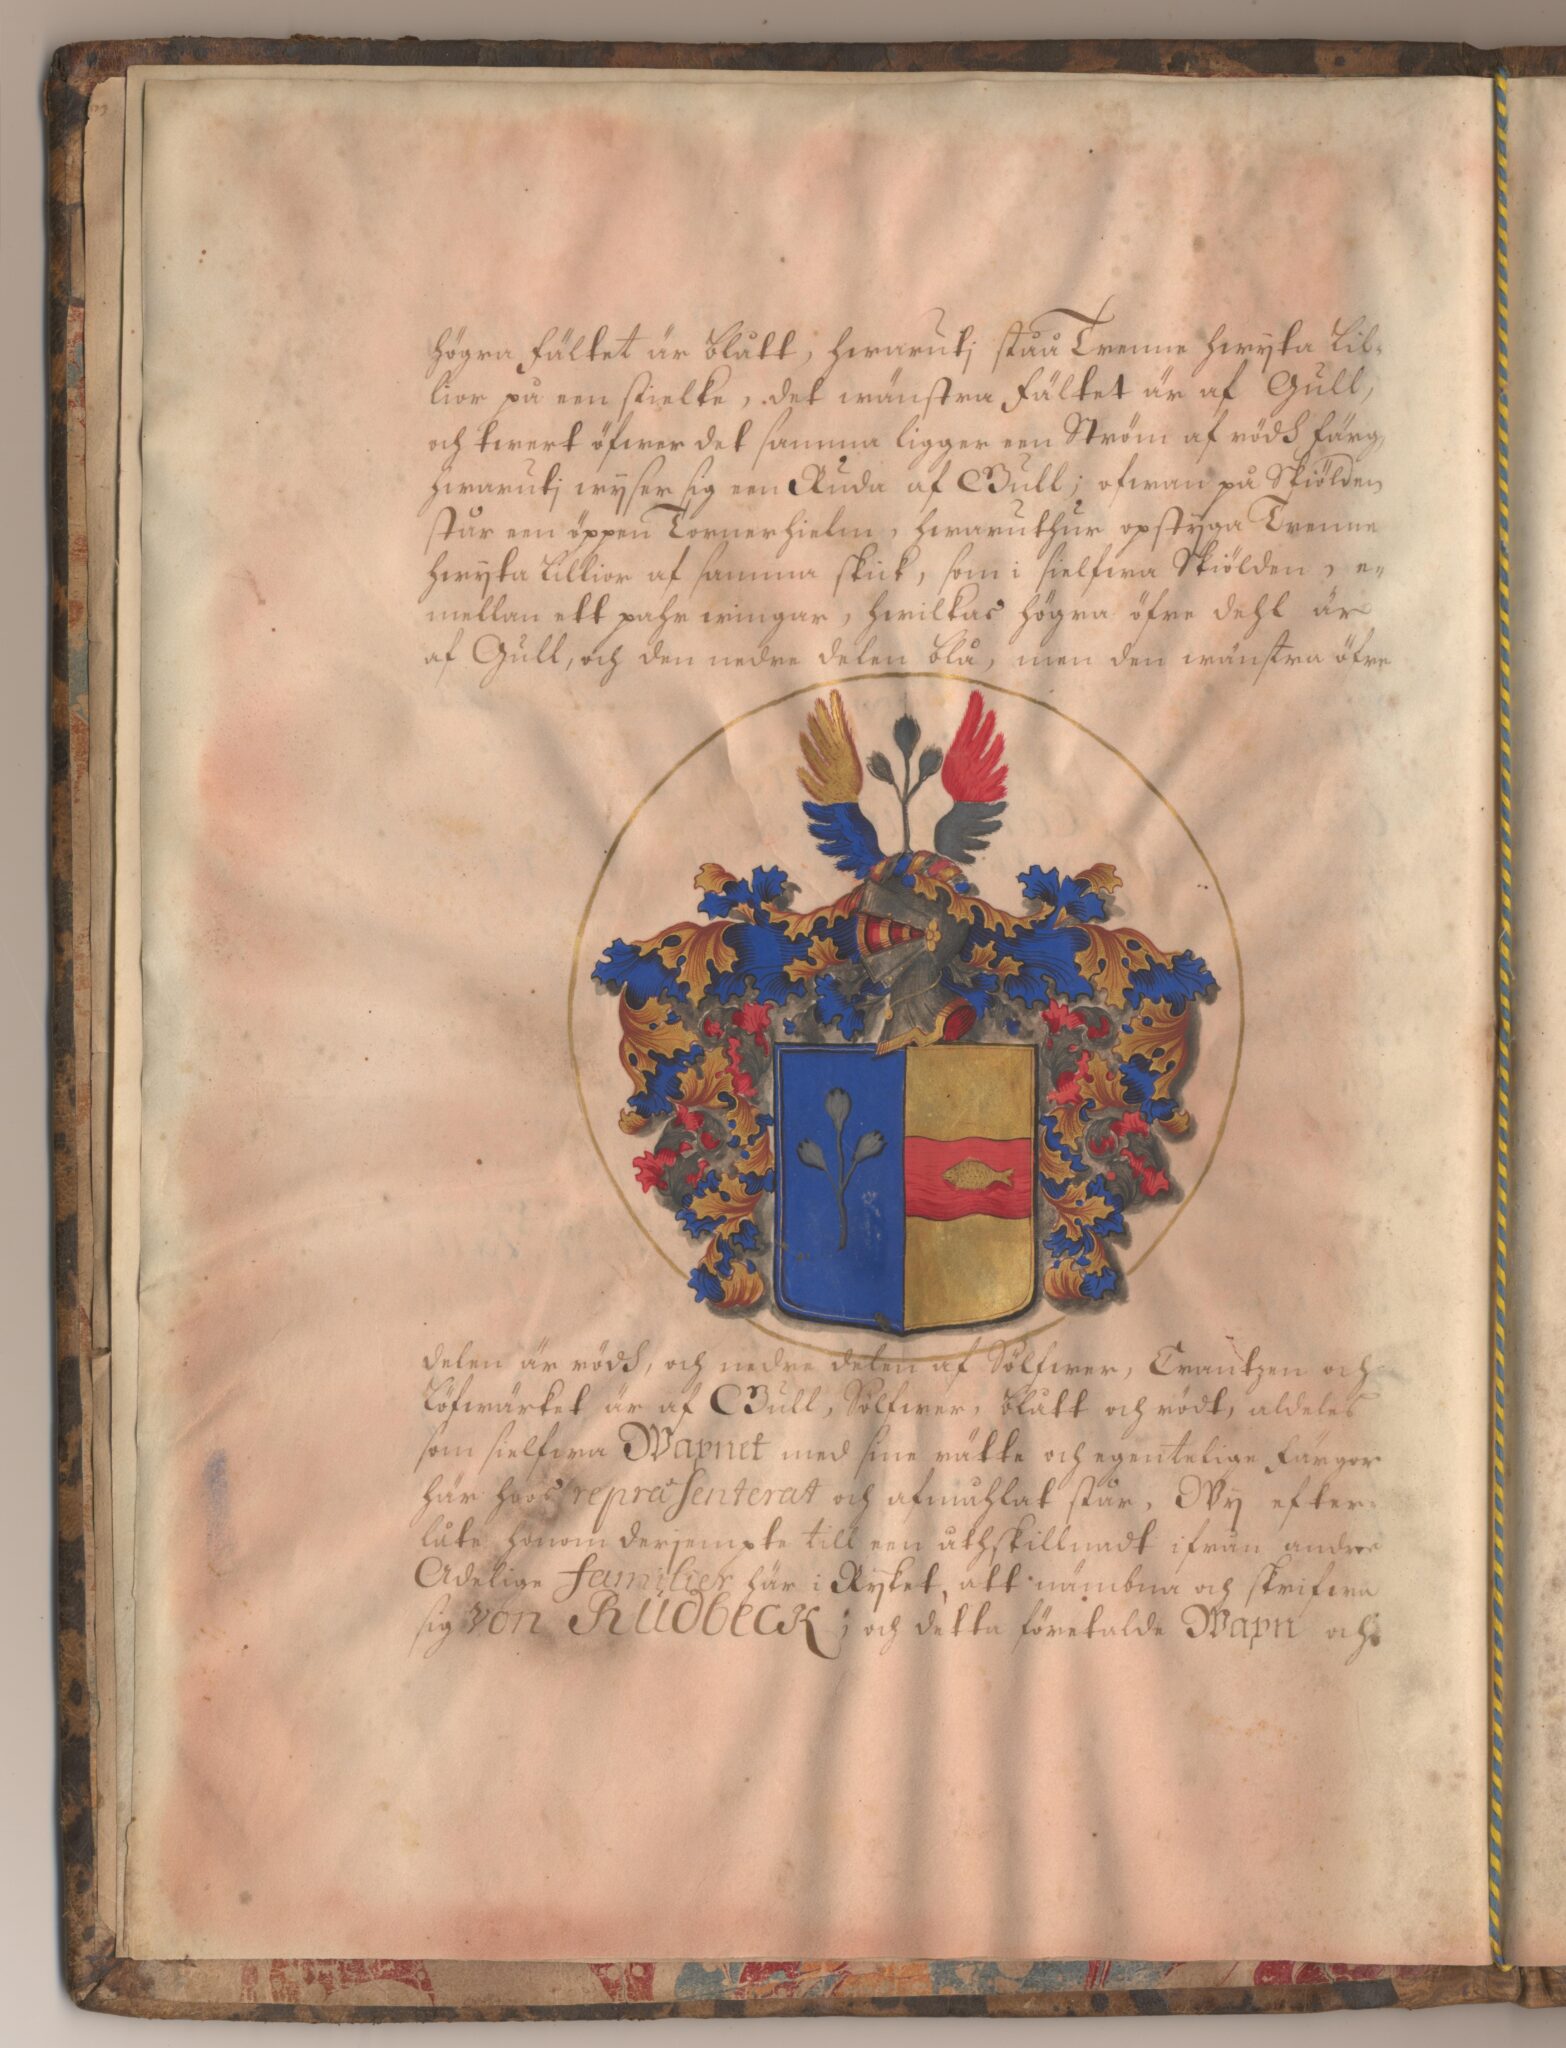 högra fältet är blått, hwarutj ståå Trenne hwyta Lil-
lior på een stielke, det wänstra fältet är af Gull,
och twert öfwer det samma ligger een Ström af rödh färg,
hwarutj wyser sig een Ruda af Gull; ofwan på Skiölden
står een öppen Tornerhielm, hwaruthur opstyga Trenne
hwyta Lillior af samma skick, som i sielfwa Skiölden, e-
mellan ett pahr wingar, hwilkas högra öfre dehl är
af Gull, och den nedre delen blå, men den wänstra öfre
delen är rödh, och nedre delen af Sölfwer, Crantzen och
Löfwärket är af Gull, Sölfwer, blått och rödt, aldeles
som sielfwa Wapnet med sine rätte och egentelige färgor
här hoos repræsenterat och afmåhlat står, Wy efter-
låte honom derjempte till een åthskillnadt ifrån andre
Adelige familier här i Ryket, att nämbna och skrifwa
sig von Rüdbeck; och detta företalde Wapn och